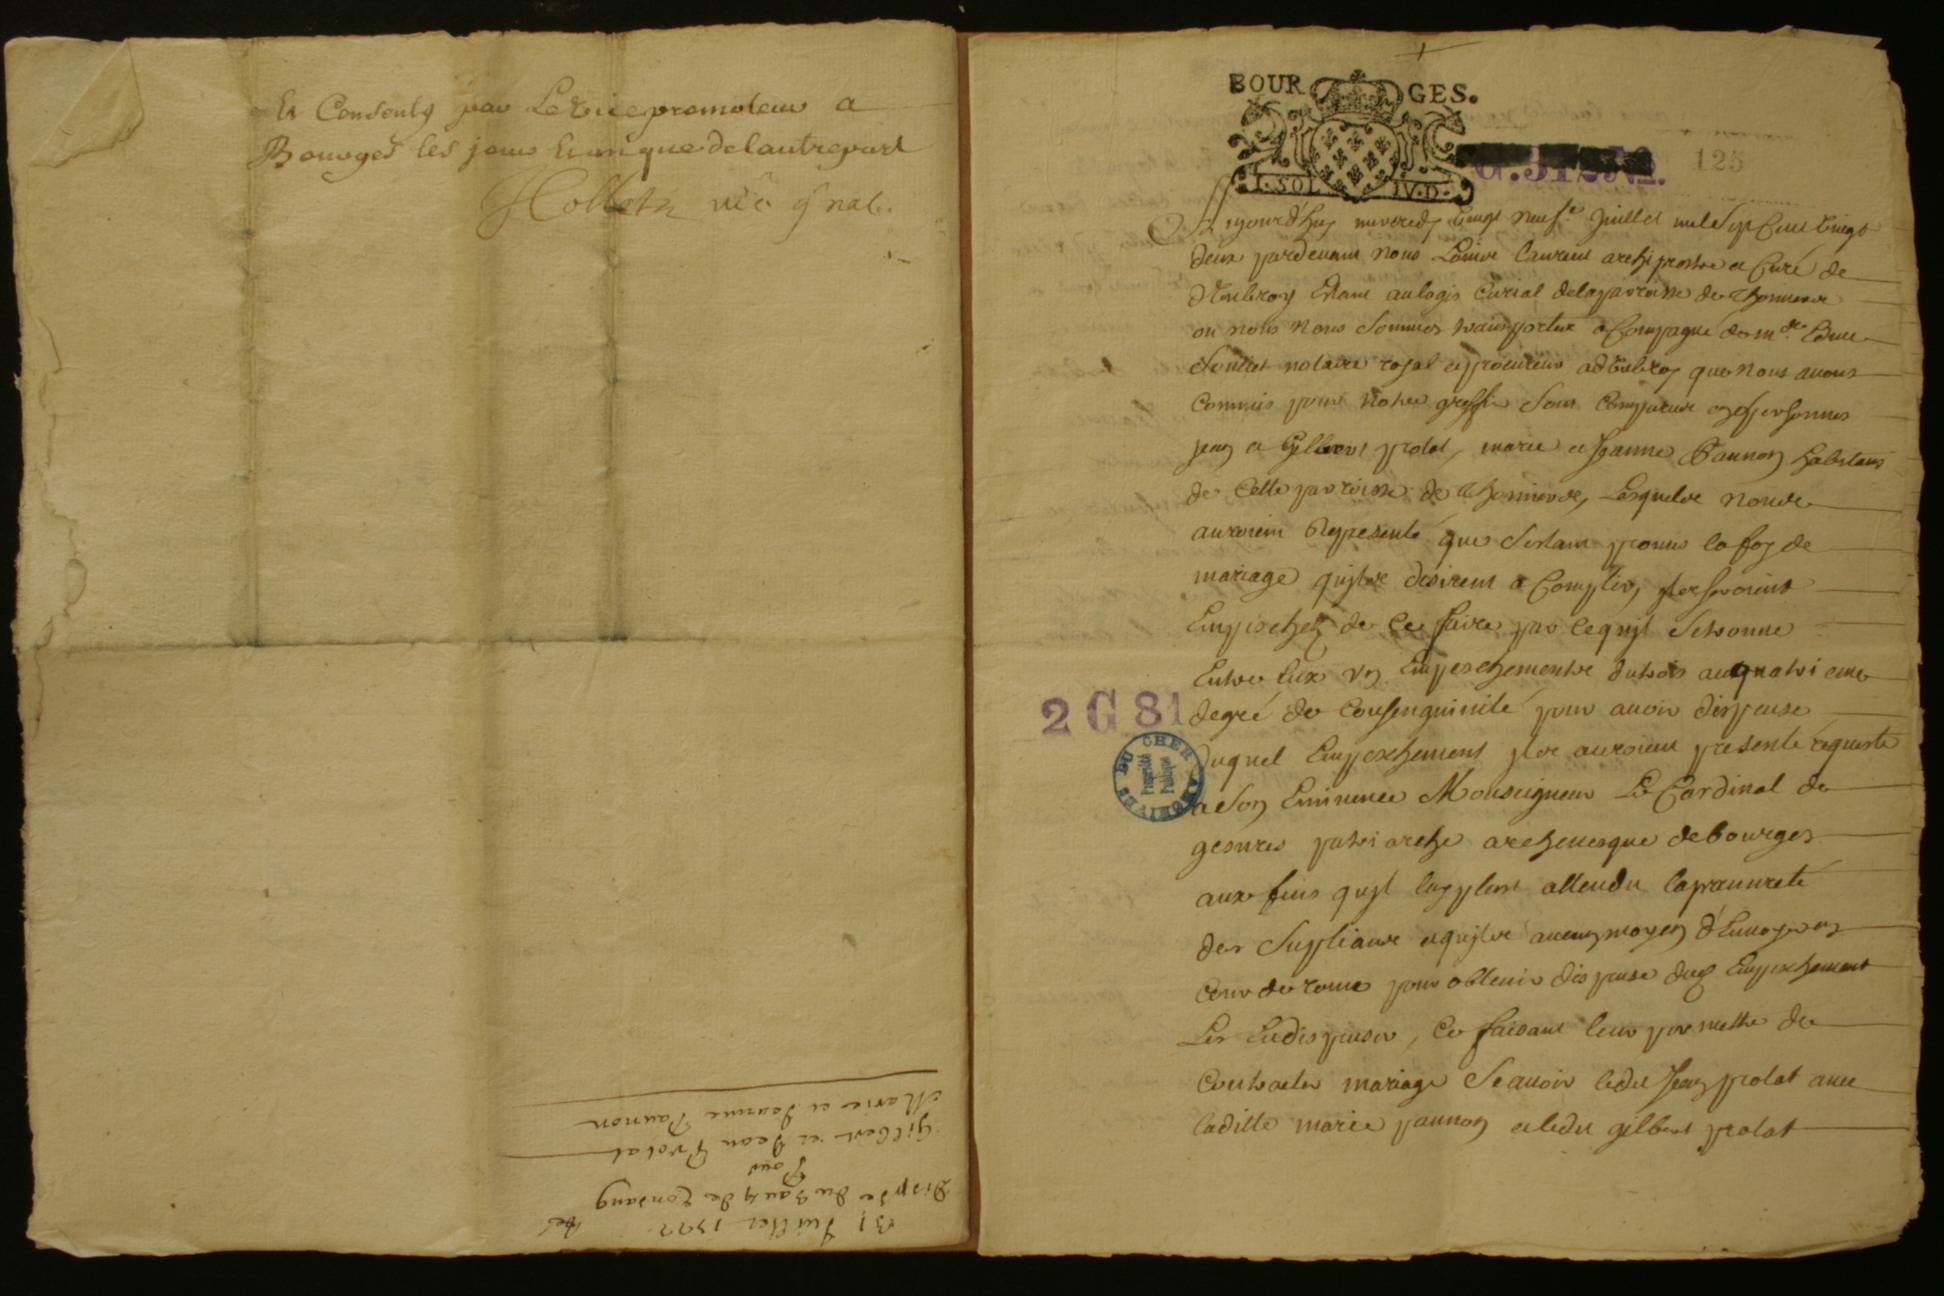 Et Consenty par Le vice promoteur a
Bourges les jour et an que de lautre part
vic g nal.
31 Juillet 1722
Disp. du 3 au 4 de Consang
Pour
Gilbert et Jean Protat
Marie et Jeanne Paunon
BOURGES.
I. SOL. IV. D.
125
Aujourd'huy mercredy vingt neuf.e juillet mil Sept Cent vingt
deux pardevant nous Laurent archiprestre et Curé de
Estant au logis Curial de la parroisse de
ou nous nous Sommes transportez acCompagné de
notaire royal et procureur que nous avons
Commis pour notre greffier Sont Comparus en personnes
jean et Gilbert protat, marie et Jeanne Paunon habitans
de Cette parroisse de Lesquels nous
auroient Representé que Sestant promis la foy de
mariage quils desirent acComplir, ils seroient
Empeschez de ce faire par ce quil Se trouve
Entre Eux un Empeschement du trois au quatrieme
degré de Consenguinité pour avoir dispense
Duquel Empeschement ils auroient presenté requeste
a Son Eminence Monseigneur Le Cardinal de
gesvres patriarche archevesque de bourges
aux fins quil luy plust attendu la pauvreté
des Supliants et quils aucun moyen d'Envoyer en
Cour de rome pour obtenir dispense dud Empeschement
Les En dispenser, Ce faisant leur permettre de
Contracter mariage Scavoir ledit Jean protat avec
laditte marie paunon et ledit gilbert protat
2 G 81
ARCHIVES DU CHER
Propriété
Publique